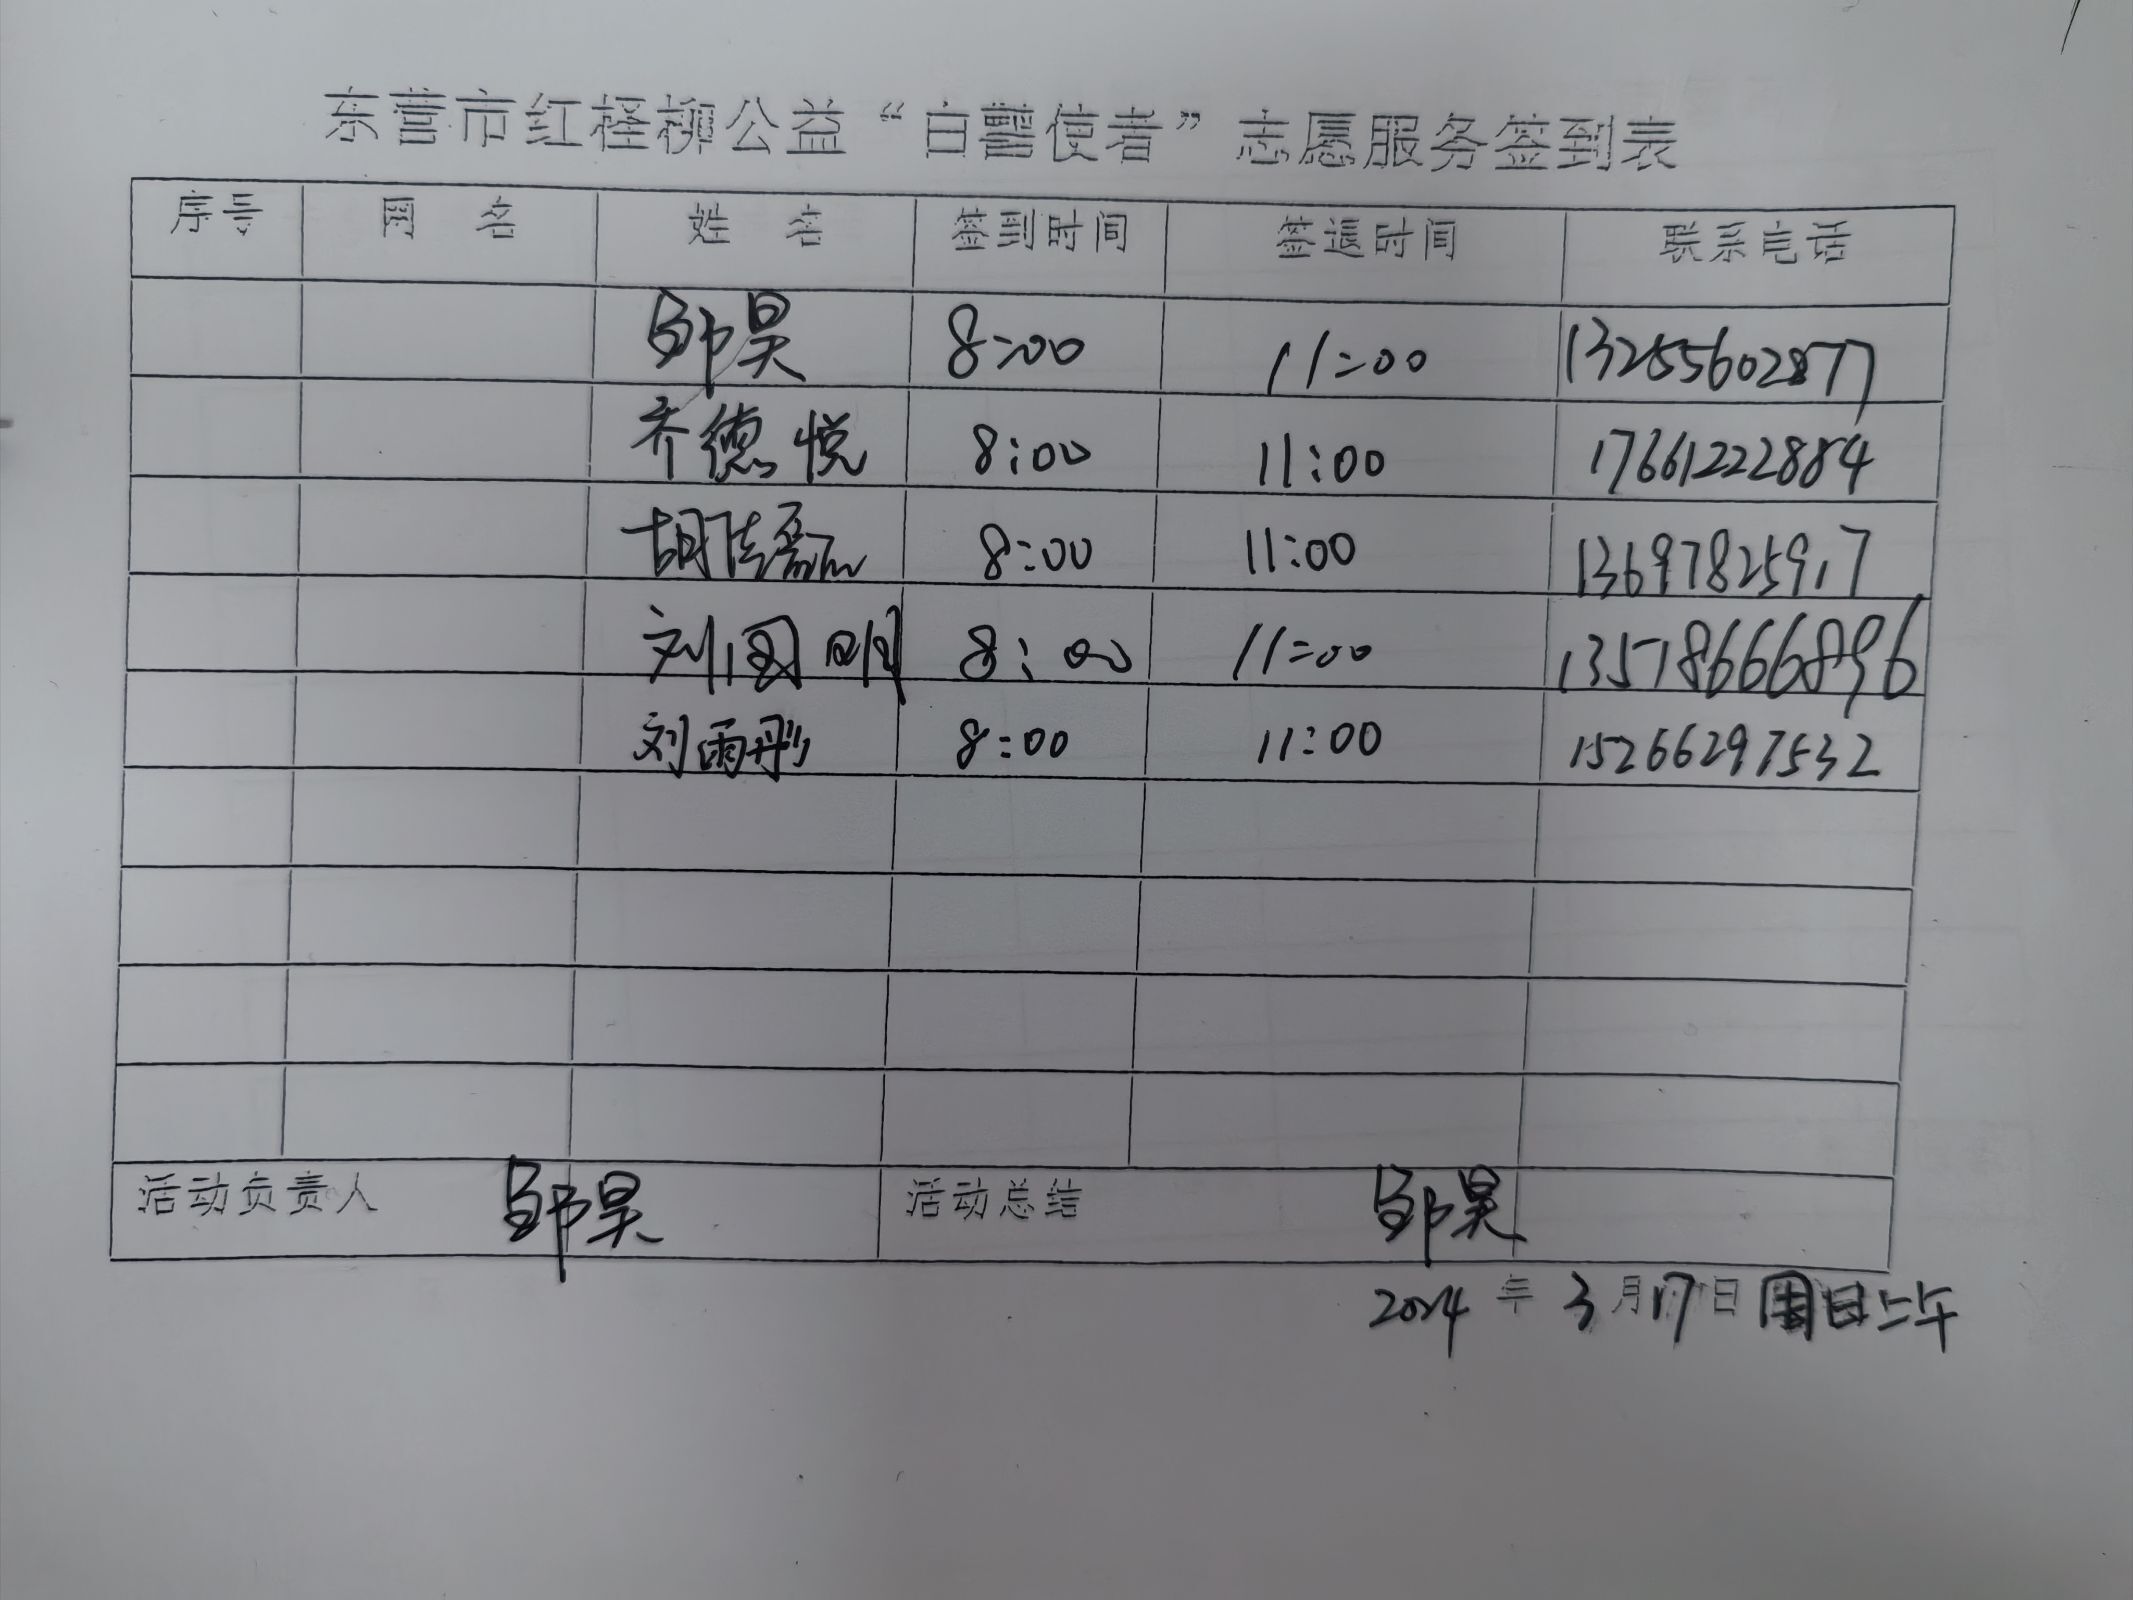 东营市红柽柳公益“白鹭使者”志愿服务签到表
序号 网名 姓名 签到时间 签退时间 联系电话
昊 8:00 11:00 13255602877
齐德悦 8:00 11:00 17661222884
胡 8:00 11:00 13697825917
刘国明 8:00 11:00 13518666896
刘雨彤 8:00 11:00 15266297532
活动负责人 昊 活动总结 昊
2024年3月17日周日上午